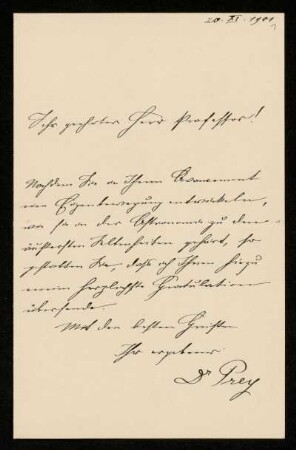 20. XI. 1901
Sehr geehrter Herr Professor!
Nachdem Sie in Ihrem Avancement
eine Eigenbewegung entwickeln,
wie sie in der Astronomie zu den
größten Seltenheiten gehört, so
gestatten Sie, daß ich Ihnen hiezu
meine herzlichste Gratulation
übersende.
Mit den besten Grüßen
Ihr ergebener
Dr Prey